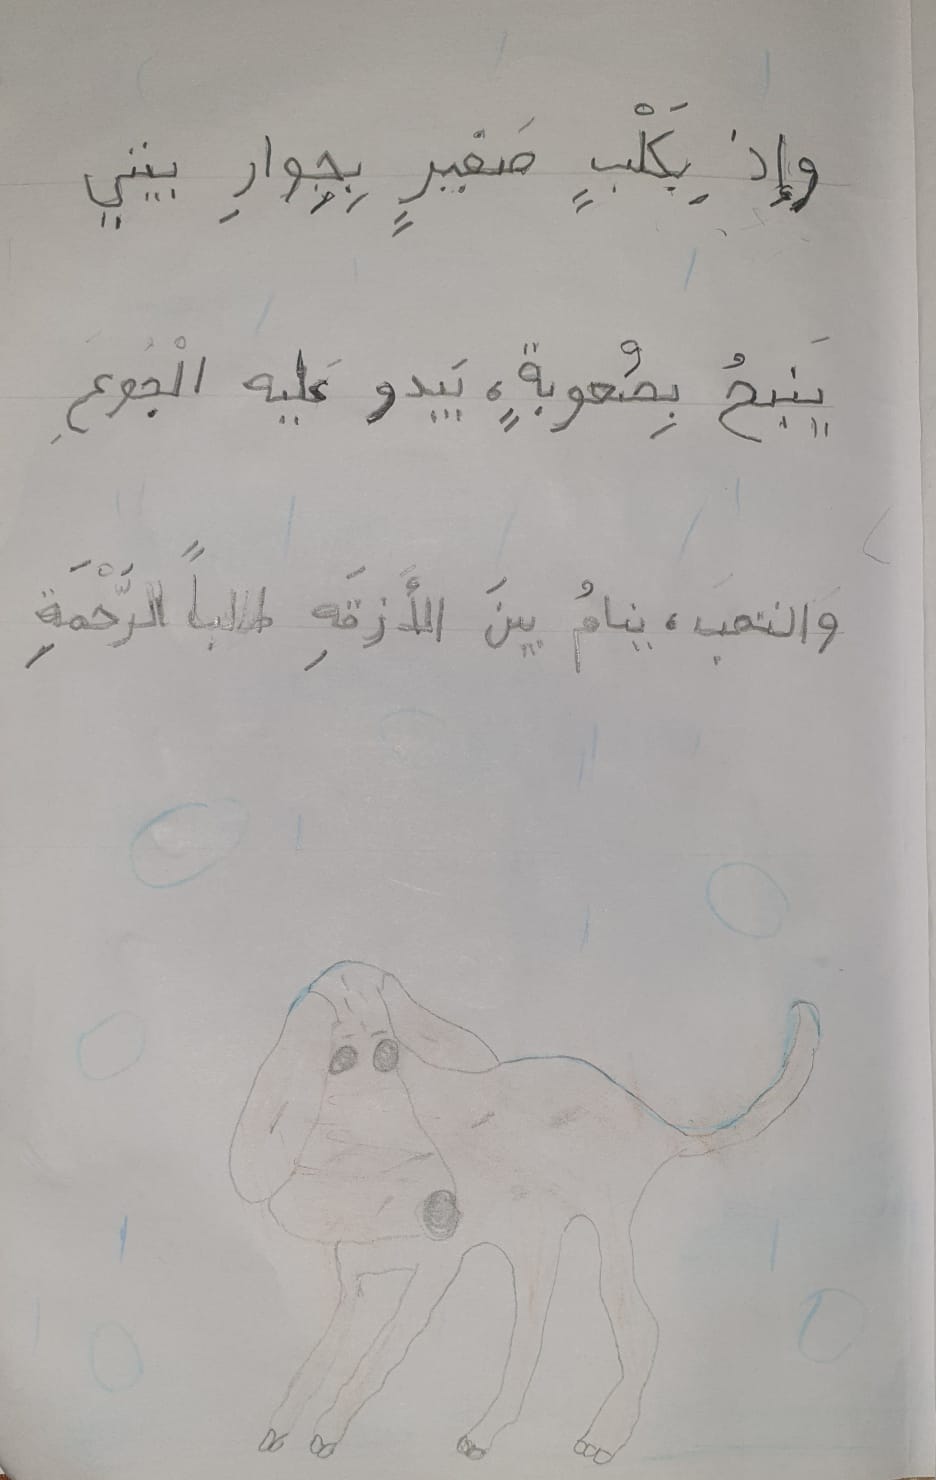 وإذْ بِكَلْبٍ صَغيرٍ بِجِوارِ بيتي
يَنبحُ بِصُعوبةٍ، يَبدو عَليه الْجُوعِ
وَالتعبَ، ينامُ بينَ اللأَزقَهِ طالباً الرَّحْمَةِ